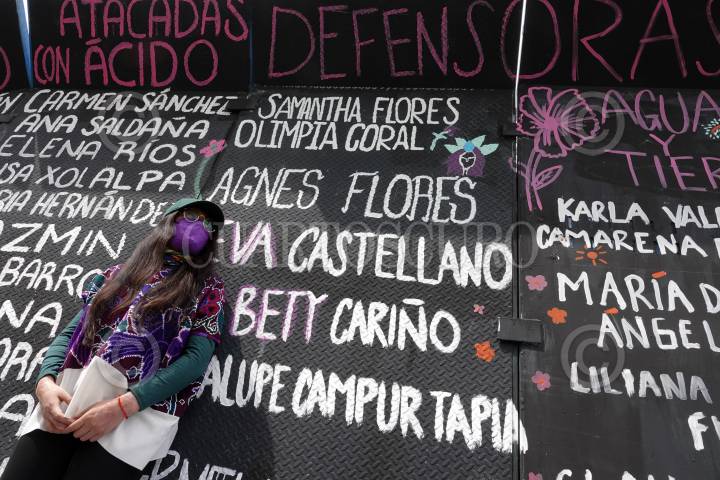 ATACADAS
CON ÁCIDO
N CARMEN SÁNCHEZ
ANA SALDAÑA
ELENA RÍOS
ISA XOLALPA
HERNÁNDE
AZMIN
BARRO
ANA
DEFENSORAS
SAMANTHA FLORES
OLIMPIA CORAL
AGNES FLORES
EVA CASTELLANO
BETY CARIÑO
ALUPE CAMPUR TAPIA
AGUA
Y
TIER
KARLA VAL
CAMARENA
MARÍA D
ANGEL
LILIANA
CUARTOSCURO